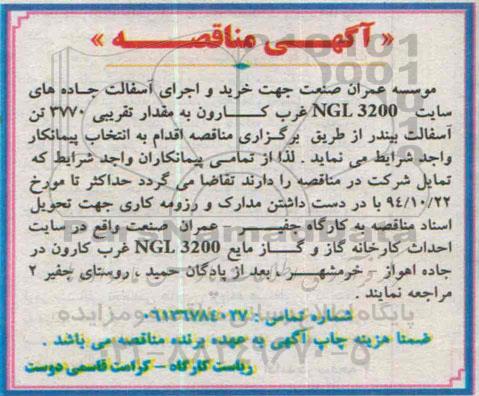 « آگهی مناقصه »
موسسه عمران صنعت جهت خرید و اجرای آسفالت جاده های
سایت NGL 3200 غرب کارون به مقدار تقریبی ۳۷۷۰ تن
آسفالت بیندر از طریق برگزاری مناقصه اقدام به انتخاب پیمانکار
واجد شرایط می نماید . لذا از تمامی پیمانکاران واجد شرایط که
تمایل شرکت در مناقصه را دارند تقاضا می گردد حداکثر تا مورخ
۹۴/۱۰/۲۲ با در دست داشتن مدارک و رزومه کاری جهت تحویل
اسناد مناقصه به کارگاه جفیر عمران صنعت واقع در سایت
احداث کارخانه گاز و گاز مایع NGL 3200 غرب کارون در
جاده اهواز - خرمشهر ، بعد از پادگان حمید ، روستای جفیر ۲
مراجعه نمایند .
شماره تماس : ۰۹۱۳۶۷۸۴۰۲۷
ضمنا هزینه چاپ آگهی به عهده برنده مناقصه می باشد .
ریاست کارگاه - کرامت قاسمی دوست
پایگاه اطلاع رسانی مناقصه و مزایده
۰۲۱-۸۸۳۴۹۶۷۰-۵